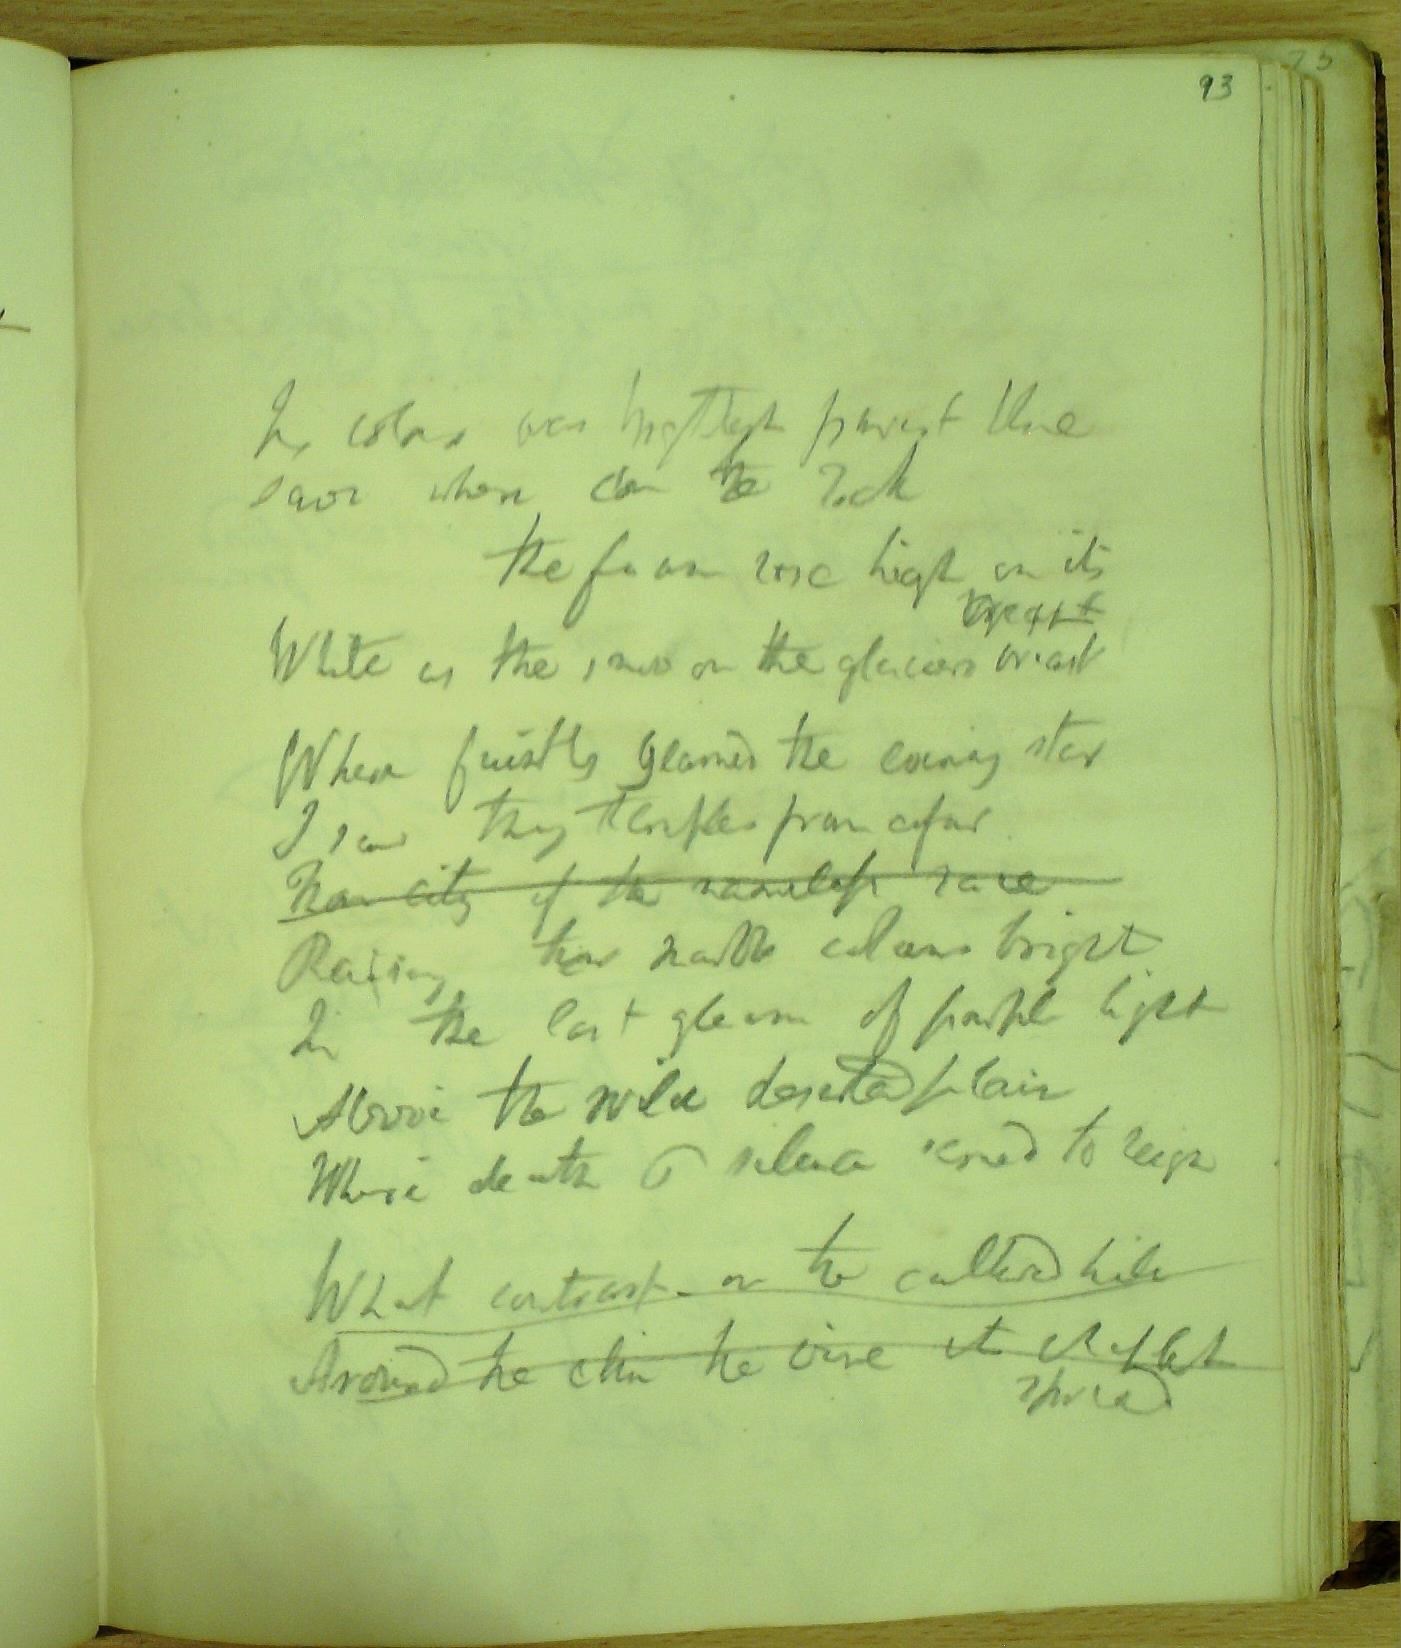 93
Its colour was brightest purest blue
save where on the rock
the foam rose high on its
breast
White as the snow on the glaciers breast
When faintly gleamed the evening star
I saw thy temples from afar
Thou city of the nameless race
Raising their marble columns bright
In the last gleam of purple light
Above the wild deserted plain
Where death & silence seemed to reign
What contrast on the cultured hills
Around the elm the vine its
spread